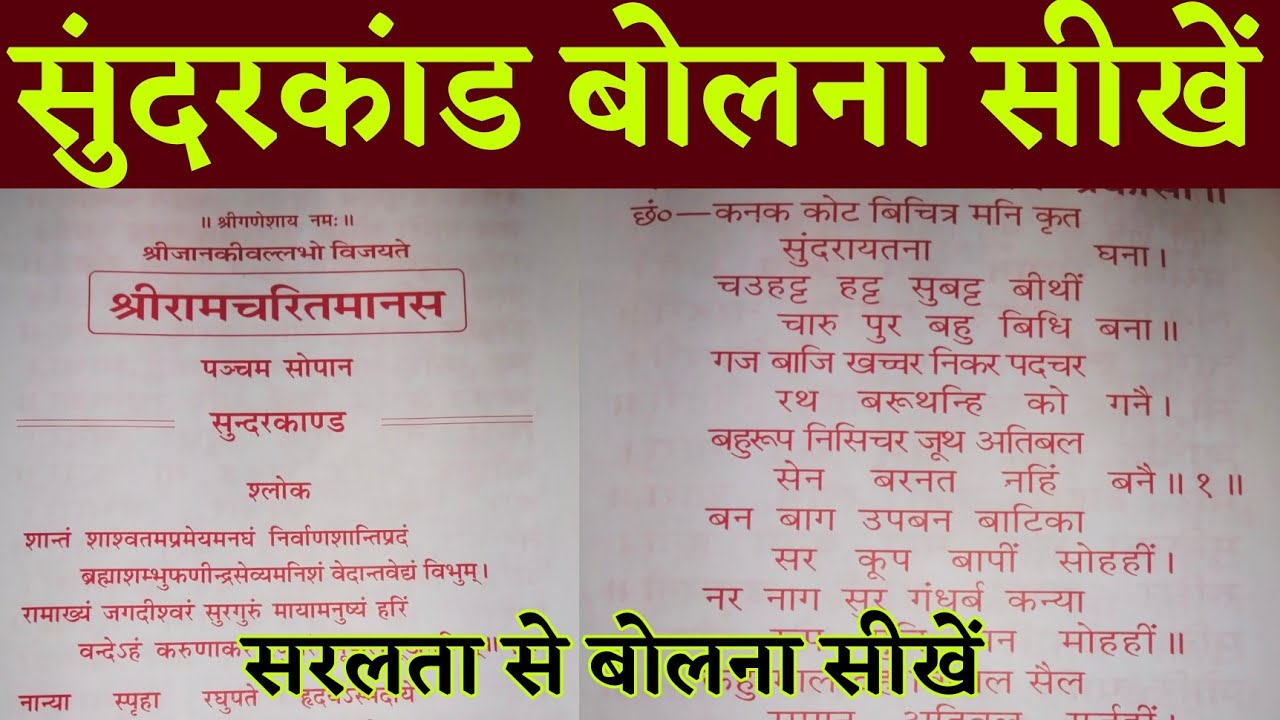 सुंदरकांड बोलना सीखें
॥ श्रीगणेशाय नमः ॥
श्रीजानकीवल्लभो विजयते
श्रीरामचरितमानस
पञ्चम सोपान
सुन्दरकाण्ड
श्लोक
शान्तं शाश्वतमप्रमेयमनघं निर्वाणशान्तिप्रदं
ब्रह्माशम्भुफणीन्द्रसेव्यमनिशं वेदान्तवेद्यं विभुम् ।
रामाख्यं जगदीश्वरं सुरगुरुं मायामनुष्यं हरिं
वन्देऽहं
नान्या स्पृहा रघुपते
छं०—कनक कोट बिचित्र मनि कृत
सुंदरायतना घना ।
चउहट्ट हट्ट सुबट्ट बीथीं
चारु पुर बहु बिधि बना ॥
गज बाजि खच्चर निकर पदचर
रथ बरूथन्हि को गनै ।
बहुरूप निसिचर जूथ अतिबल
सेन बरनत नहिं बनै ॥ १ ॥
बन बाग उपबन बाटिका
सर कूप बापीं सोहहीं ।
नर नाग सुर गंधर्ब कन्या
मोहहीं ॥
सैल
सरलता से बोलना सीखें